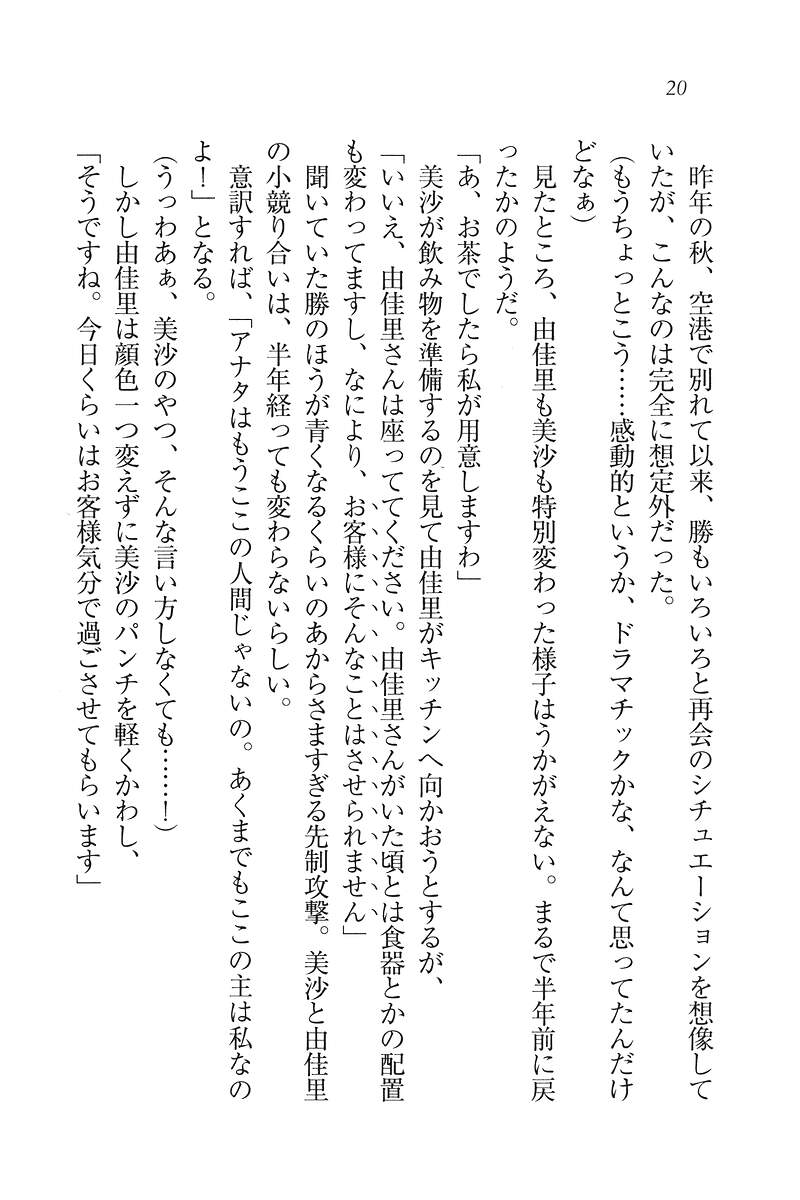 20
昨年の秋、空港で別れて以来、勝もいろいろと再会のシチュエーションを想像して
いたが、こんなのは完全に想定外だった。
(もうちょっとこう……感動的というか、ドラマチックかな、なんて思ってたんだけ
どなぁ)
見たところ、由佳里も美沙も特別変わった様子はうかがえない。まるで半年前に戻
ったかのようだ。
「あ、お茶でしたら私が用意しますわ」
美沙が飲み物を準備するのを見て由佳里がキッチンへ向かおうとするが、
「いいえ、由佳里さんは座っててください。由佳里さんがいた頃とは食器とかの配置
も変わってますし、なにより、お客様にそんなことはさせられません」
聞いていた勝のほうが青くなるくらいのあからさますぎる先制攻撃。美沙と由佳里
の小競り合いは、半年経っても変わらないらしい。
意訳すれば、「アナタはもうここの人間じゃないの。あくまでもここの主は私なの
よ！」となる。
(うっわあぁ、美沙のやつ、そんな言い方しなくても……！)
しかし由佳里は顔色一つ変えずに美沙のパンチを軽くかわし、
「そうですね。今日くらいはお客様気分で過ごさせてもらいます」